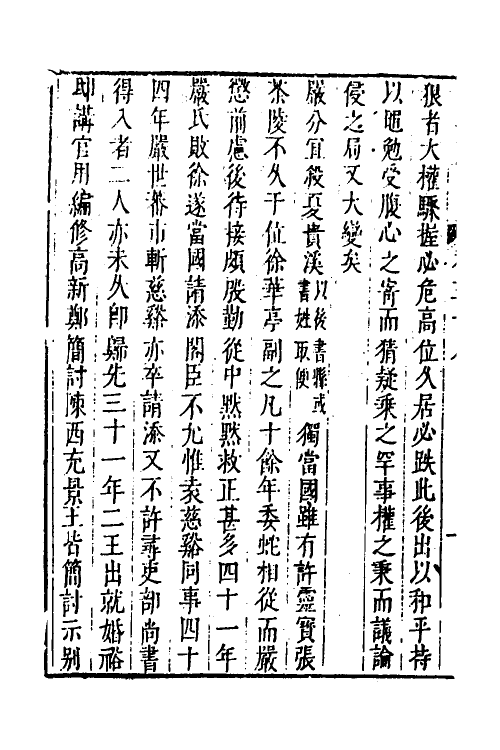 狠者大權驟握必危高位久居必跌此後出以和平持
以黽勉受腹心之寄而猜疑乗之罕事權之秉而議論
侵之局又大變矣
嚴分宜殺夏貴溪以後書縣或書姓取便獨當國雖有許靈寶張
茶陵不久于位徐華亭副之凡十餘年委蛇相從而嚴
懲前慮後待接頗殷勤從中默默救正甚多四十一年
嚴氏敗徐遂當國請添閣臣不允惟袁慈谿同事四十
四年嚴世蕃市斬慈谿亦卒請添又不許尋吏部尚書
得入者二人亦未久卽歸先三十一年二王出就婚裕
邸講官用編修高新鄭簡討陳西充景王皆簡討示别